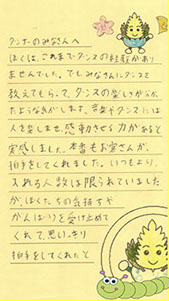 ダンサーのみなさんへ
ぼくは、これまでダンスの経験があり
ませんでした。でもみなさんにダンスを
教えてもらって、ダンスの楽しさがらかっ
たような気がします。音楽やダンスには
人を楽しませ、感動させる力があると
実感しました。本番もお客さんが、
拍手をしてくれました。いつもより、
入れる人数は限られていました
が、ぼくたちの気持ちや
がんばりを受け止めて
くれて、思いっきり
拍手をしてくれたと